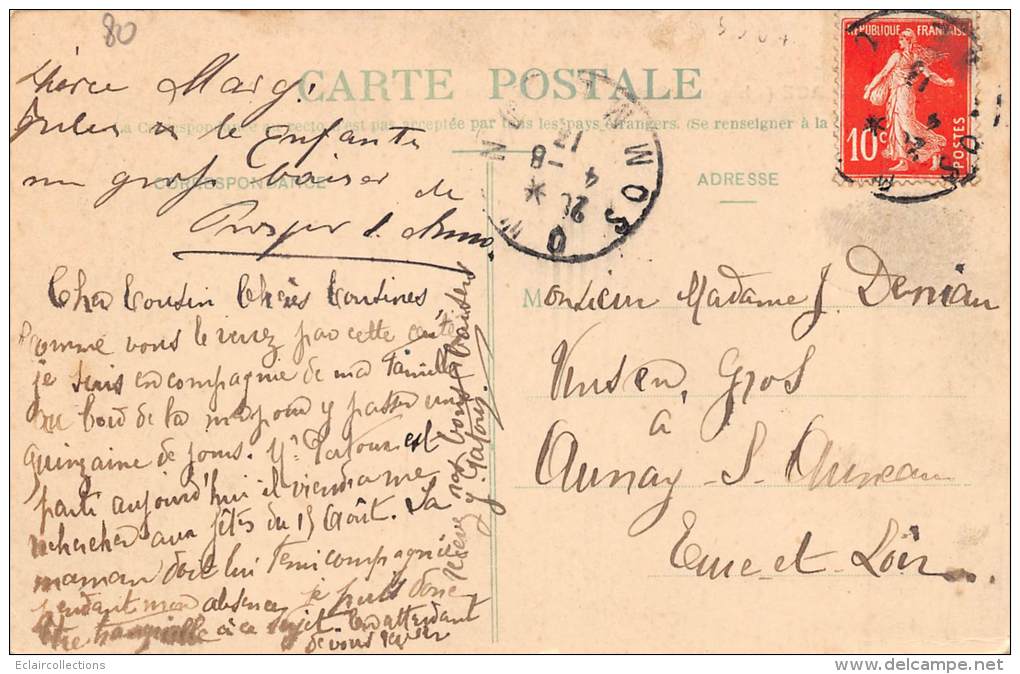 80
Chère Marg.
à l'Enfants
un gros baiser de
Prosper
CARTE POSTALE
La Correspondance au recto n'est pas acceptée par tous les pays étrangers. (Se renseigner à la
CORRESPONDANCE
ADRESSE
RÉPUBLIQUE FRANÇAISE
10c
POSTES
SOMME
Cher Cousin Chères Cousines
Comme vous le verez par cette carte
je suis en compagnie de ma famille
au bord de la mer pour y passer une
quinzaine de jours. Mr est
parti aujourd'hui il viendra me
rechercher aux fêtes du 15 Août. Sa
maman doit lui tenir compagnie
pendant mon absence, je puis donc
être tranquille à ce sujet. En attendant
de vous
nos bons baisers
Monsieur Madame J. Denian
Gros
à
Aunay S. Auneau
Eure et Loir
Eclaircollections
http://eclaircollections.delcampe.net